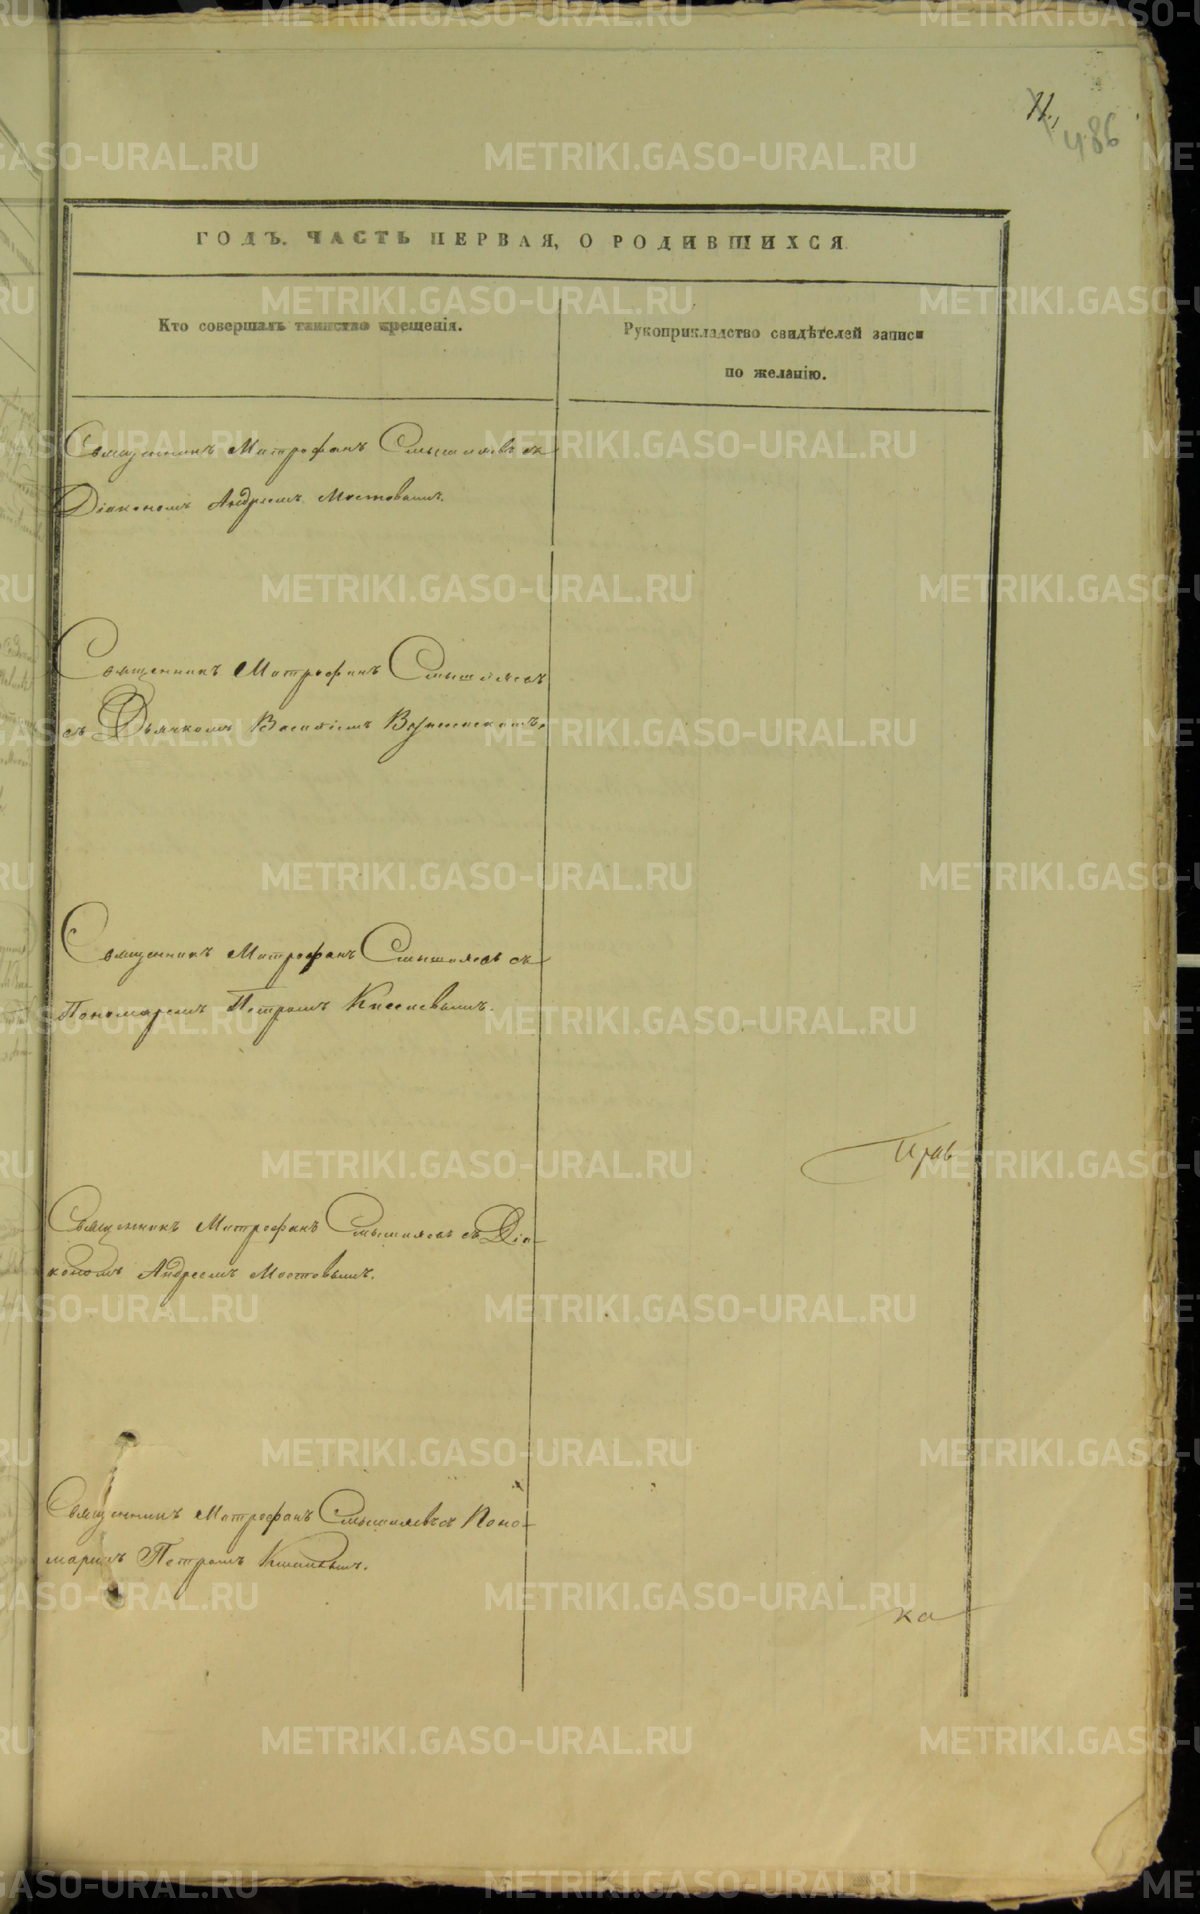 11.
486
ГОДЪ. ЧАСТЬ ПЕРВАЯ, О РОДИВШИХСЯ
Кто совершалъ таинство крещенія.
Рукоприкладство свидѣтелей записи
по желанію.
Священникъ Митрофанъ Смышляевъ съ
Діакономъ Андреемъ Мостовымъ.
Священникъ Митрофанъ Смышляевъ
съ Дьячкомъ Василіемъ Вознесенскимъ.
Священникъ Митрофанъ Смышляевъ съ
Пономаремъ Петромъ Киселевымъ.
Священникъ Митрофанъ Смышляевъ съ Діа-
кономъ Андреемъ Мостовымъ.
Священникъ Митрофанъ Смышляевъ съ Поно-
маремъ Петромъ
ка
METRIKI.GASO-URAL.RU